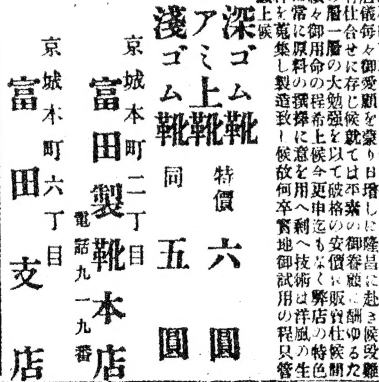 儀每々御愛顧を蒙り日增しに隆昌に赴き候段難
有仕合せに存じ候就ては平素の御眷顧に酬ゆるた
層一層の大勉强を以て破格の安價に販賣仕候間
々御用命の程希上候今更申迄もなく弊店の特色
は常に原料の撰擇に意を用へ剩へ技術は洋風の生
粹を蒐集し製造致し候故何卒實地御試用の程只管
上候
深ゴム靴
アミ上靴 特價 六圓
淺ゴム靴 同 五圓
京城本町二丁目
富田製靴本店
電話九一九番
京城本町六丁目
富田支店